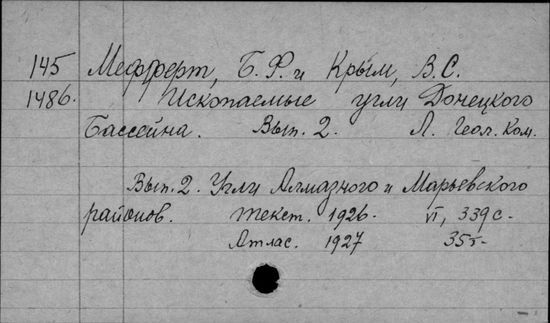 145 Мефферт, Б. Ф. и Крым, В. С.
1486. Ископаемые угли Донецкого
Бассейна. Вып. 2. Л. Геол. Ком.
Вып. 2. Угли Алмазного и Марьевского
районов. Текст. 1926. VI, 339 с.
Атлас. 1927 35 т.